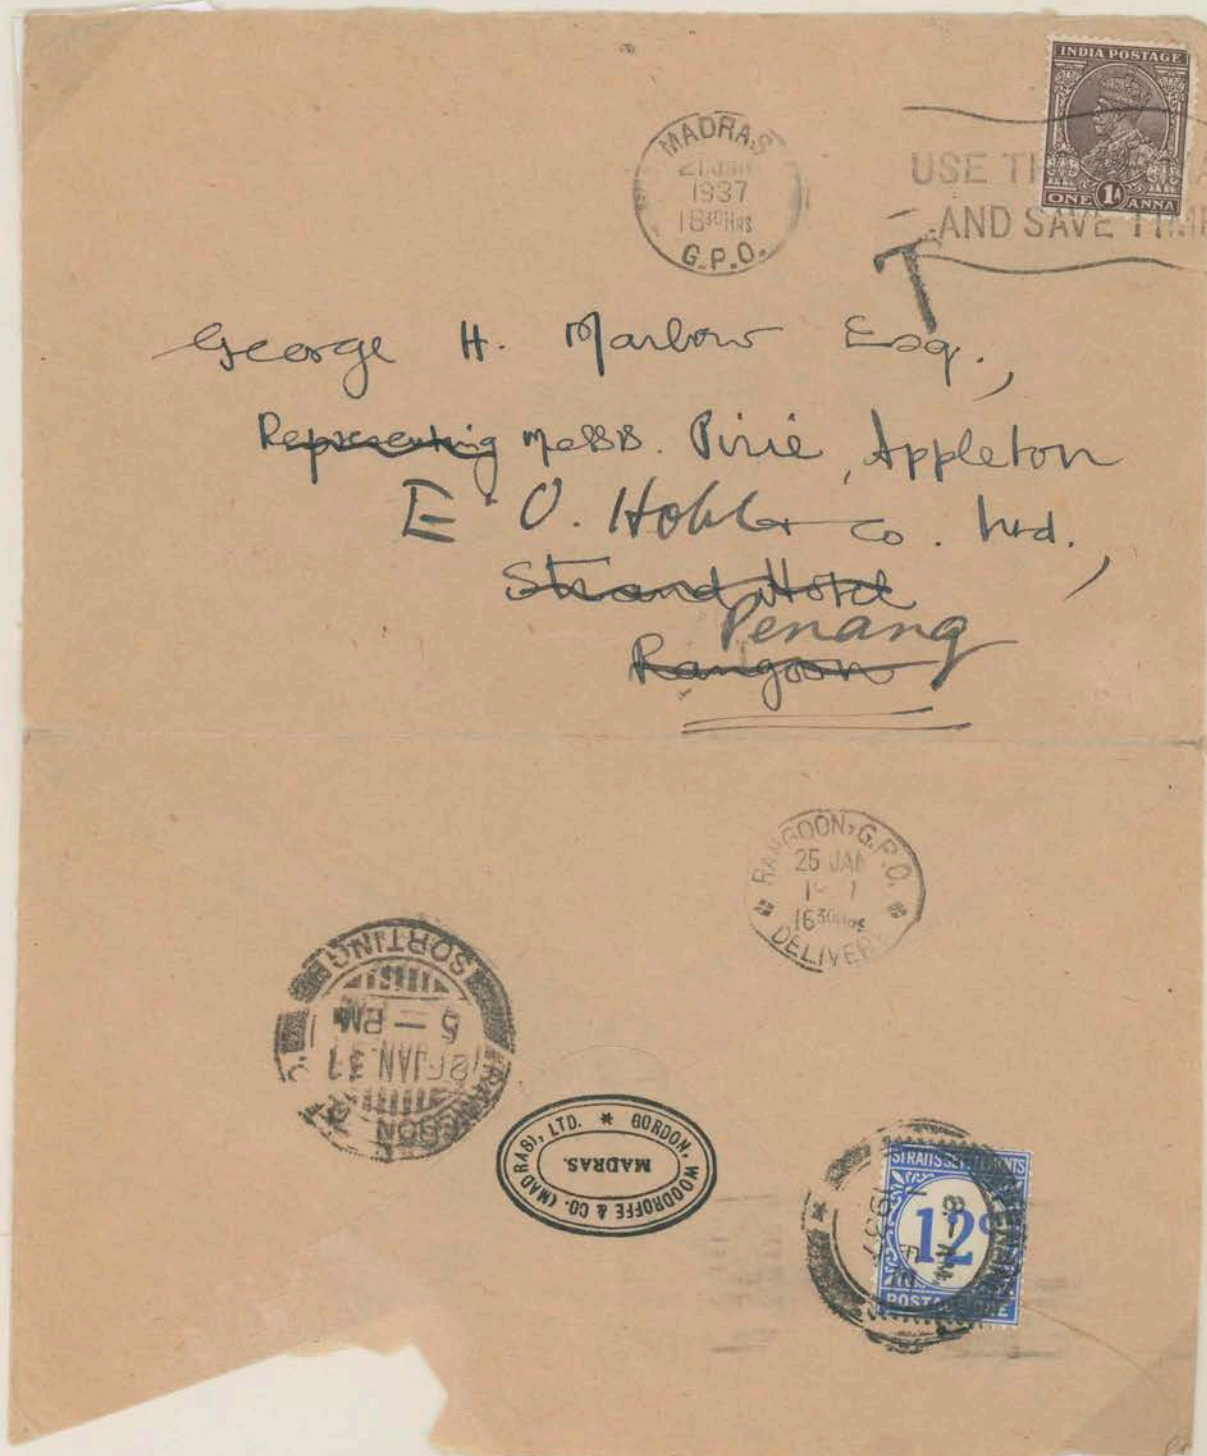 INDIA POSTAGE
ONE 1A ANNA
MADRAS
21 JAN
1937
18 30 HRS
G.P.O.
USE
AND SAVE TIME
T
George H. Marlow Esq.,
Representing Messrs. Pirie, Appleton
E. O. Co. Ltd.,
Strand Hotel
Penang
Rangoon
RANGOON. G.P.O.
25 JAN
16 30 HRS
DELIVERY
SORTING
5 — PM
JAN. 37
RANGOON
GORDON, WOODROFFE & CO. (MADRAS), LTD. *
MADRAS.
STRAITS SETTLEMENTS
12c
POSTAGE DUE
PENANG
1937